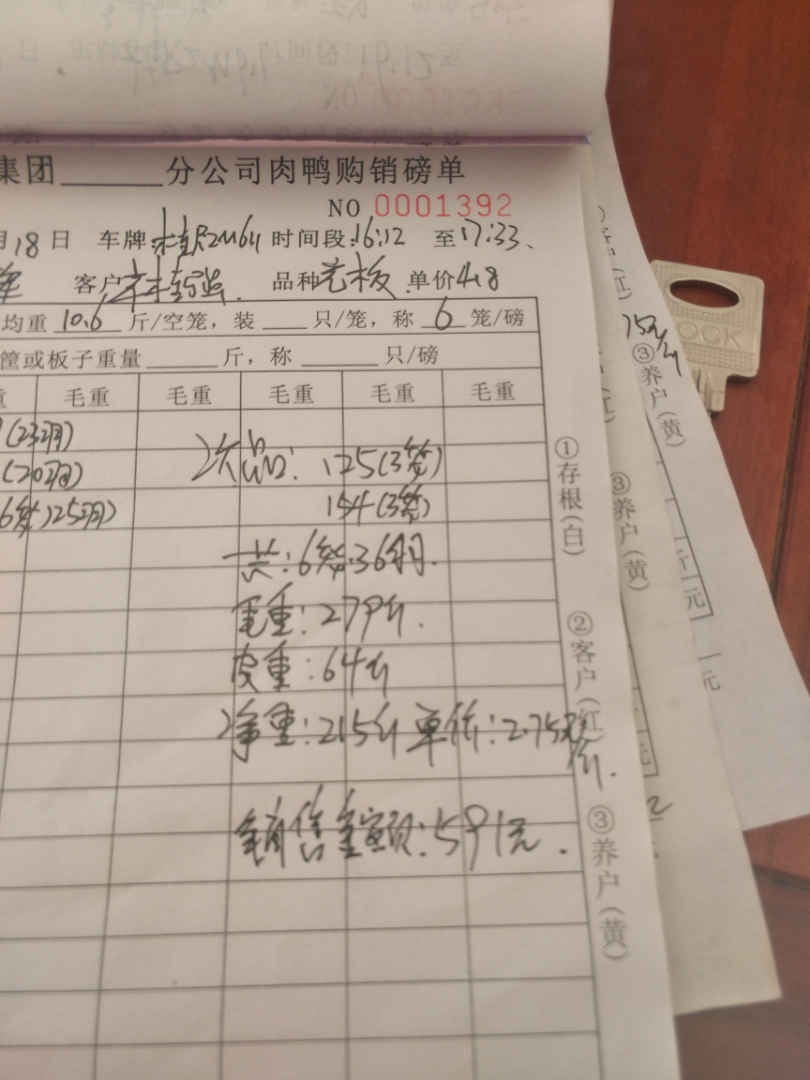 集团______分公司肉鸭购销磅单
NO 0001392
月18日 车牌: 时间段:16:12 至17:33.
客户 品种 老板 单价4.8
均重 10.6 斤/空笼，装___只/笼，称 6 笼/磅
筐或板子重量______斤，称______只/磅
重 毛重 毛重 毛重 毛重 毛重
(23羽)
次品: 125(3笼)
(20羽)
154(3笼)
6笼)(25羽)
共:6笼.36羽.
毛重:279斤.
皮重:64斤
净重:215斤 单价:2.75元/斤.
销售金额:591元.
①存根(白)
②客户(红)
③养户(黄)
③养户(黄)
③养户(黄)
斤
元
元